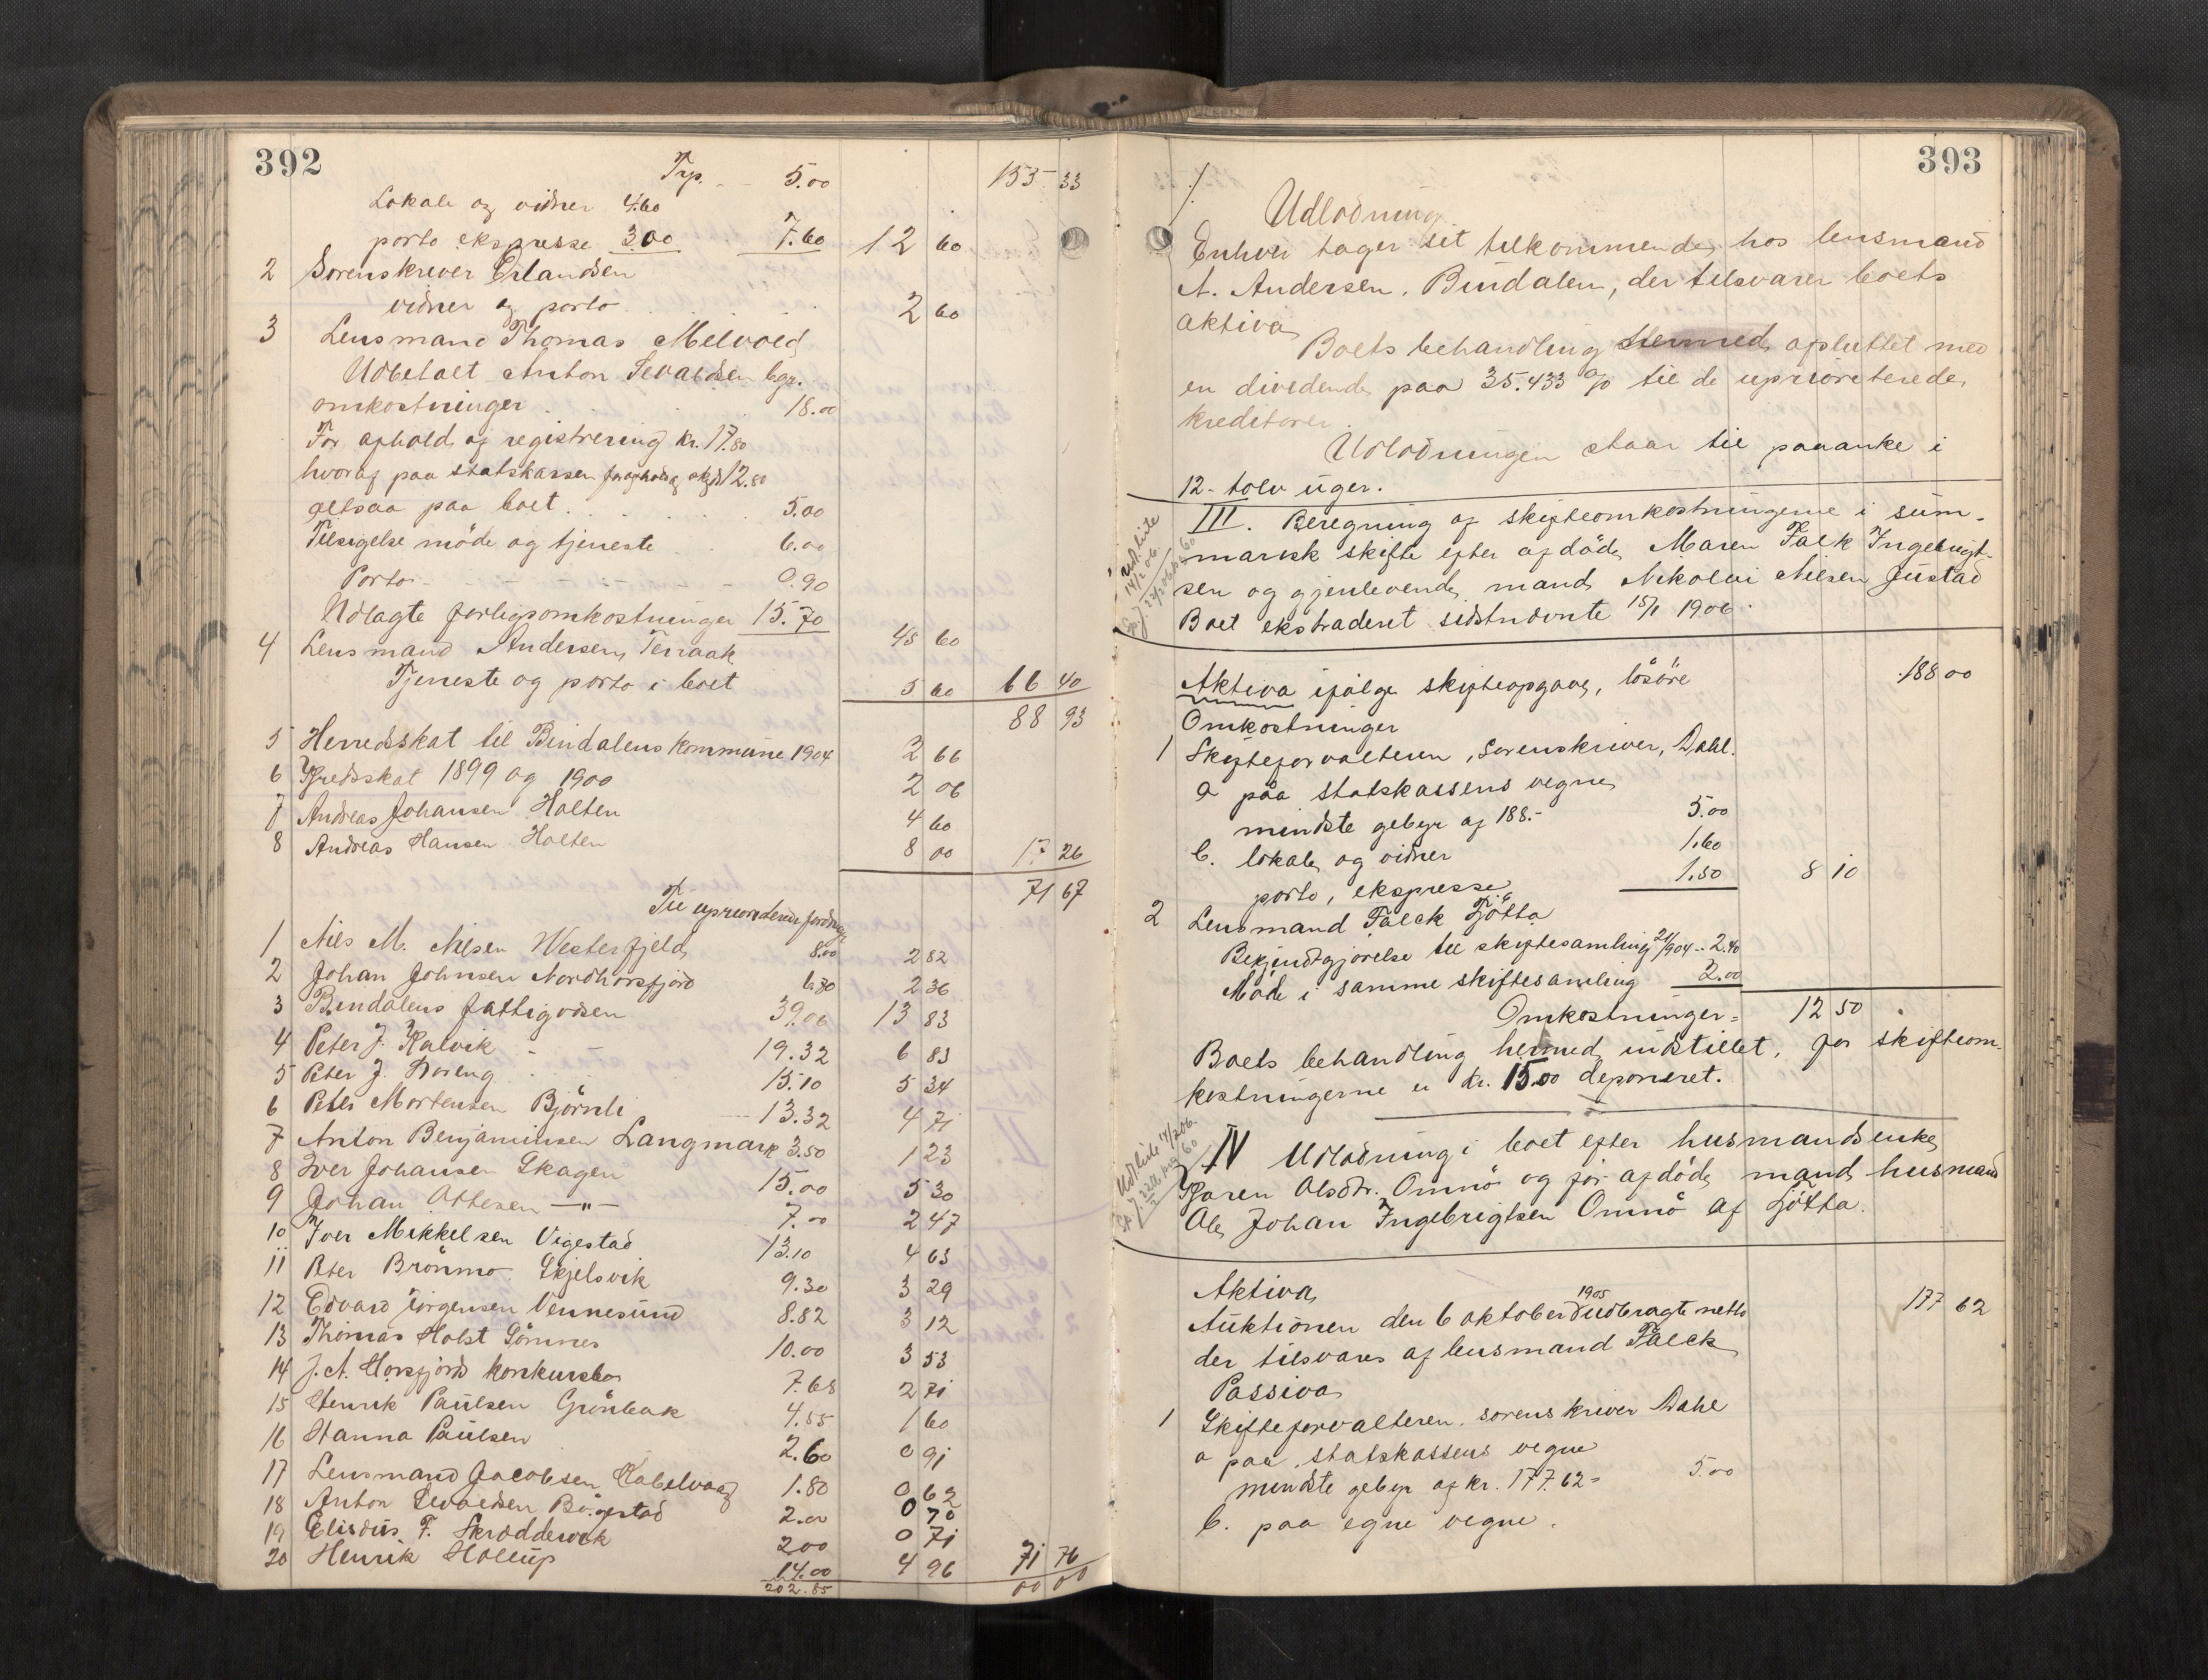 392
Trp. 5.00 155 33
Lokale og vidner 4.60
porto ekspresse 3.00 7.60 12 60
2 Sorenskriver Erlandsen
vidner og porto 2 60
3 Lensmand Thomas Melvold
Udbetalt Anton Sevaldsen
omkostninger 18.00
For ophold og registrering kr. 17.80
hvoraf paa statskassen 12.80
altsaa paa boet 5.00
Tilsigelse möde og tjeneste 6.00
Porto 0.90
Udlagte forligsomkostninger 15.70
45 60
4 Lensmand Andersen, Terraak
Tjeneste og porto i boet 5 60 66 40
88 93
5 Herredsskat til Bindalens kommune 1904 2 66
6 Kredsskat 1899 og 1900 2 06
7 Andreas Johansen Holten 4 60
8 Andreas Hansen Holten 8 00 17 26
71 67
Til uprioriterede fordringer
1 Nils M. Nilsen Westerfjeld 8.00 2 82
2 Johan Johnsen Nordhorsfjord 6.80 2 36
3 Bindalens fattigvæsen 39.06 13 83
4 Peter J. Kalvik 19.32 6 83
5 Peter J. Horeng 15.10 5 34
6 Peter Mortensen Björnli 13.32 4 71
7 Anton Benjaminsen Langmark 3.50 1 23
8 Iver Johansen Skagen 15.00 5 30
9 Johan Ottesen —"— 7.00 2 47
10 Iver Mikkelsen Vigestad 13.10 4 63
11 Peter Brönmo Skjelsvik 9.30 3 29
12 Edvard Jörgensen Vennesund 8.82 3 12
13 Thomas Holst Sömnes 10.00 3 53
14 J. A. Horsfjords konkursbo 7.68 2 71
15 Henrik Paulsen Grönbak 4.55 1 60
16 Hanna Paulsen 2.60 0 91
17 Lensmand Jacobsen Kabelvaag 1.80 0 62
18 Anton Sevaldsen Bögestad 2.00 0 70
19 Elisæus F. Skræddervik 2.00 0 71
20 Henrik Hollup 14.00 4 96 71 76
202.85 00 00
393
Udlodning
Enhver tager sit tilkommende hos lensmand
A. Andersen, Bindalen, der tilsvarer boets
aktiva
Boets behandling hermed afsluttet med
en dividende paa 35.433 % til de uprioriterede
kreditorer.
Udlodningen staar til paaanke i
12 - tolv uger.
III. Beregning af skifteomkostningerne i sum-
marisk skifte efter afdöde Maren Falk Ingebrigt-
sen og gjenlevende mand Nikolai Nilsen Justad
Boet ekstraderet sidstnævnte 15/1 1906.
Aktiva ifölge skifteopgave, lösöre 188 00
Omkostninger
1 Skifteforvalteren, Sorenskriver, Dahl.
a paa statskassens vegne
mindste gebyr af 188.- 5.00
b. lokale og vidner 1.60
porto, ekspresse 1.50 8 10
2 Lensmand Falck Tjötta
Bekjendtgjörelse til skiftesamling 21/904 .. 2.40
Möde i samme skiftesamling 2.00
Omkostninger = 12 50
Boets behandling hermed indstillet, for skifteom-
kostningerne er kr. 15.00 deponeret.
IV Udlodning i boet efter husmandsenke
Karen Olsdtr. Omnö og för afdöde mand husmand
Ole Johan Ingebrigtsen Omnö af Tjötta.
Aktiva
1905
Auktionen den 6 oktober udbragte netto 177 62
der tilsvares af lensmand Falck
Passiva
1 Skifteforvalteren, sorenskriver Dahl
a paa statskassens vegne
mindste gebyr af kr. 177.62 = 5.00
b. paa egne vegne.